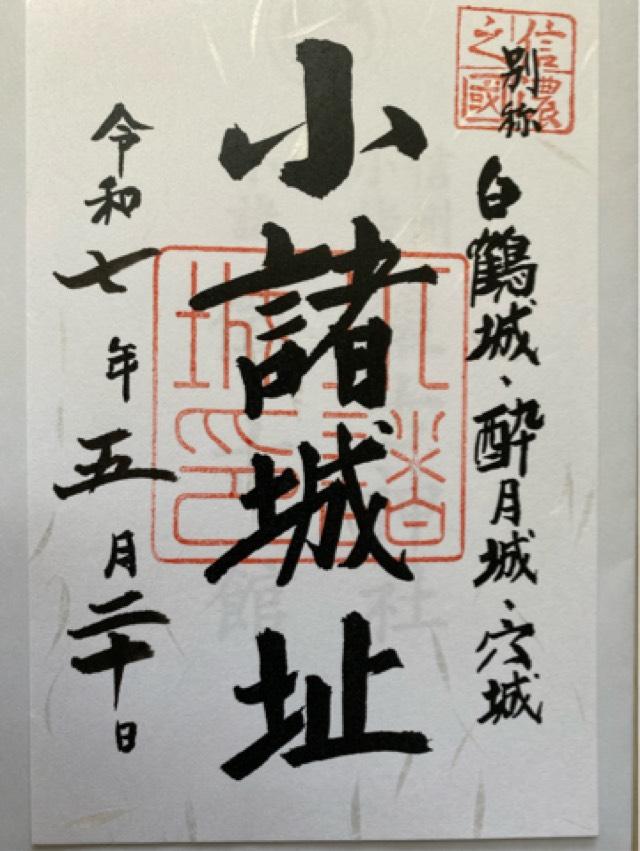 信濃之國
別称
白鶴城、酔月城、穴城
小諸城址
令和七年五月二十日